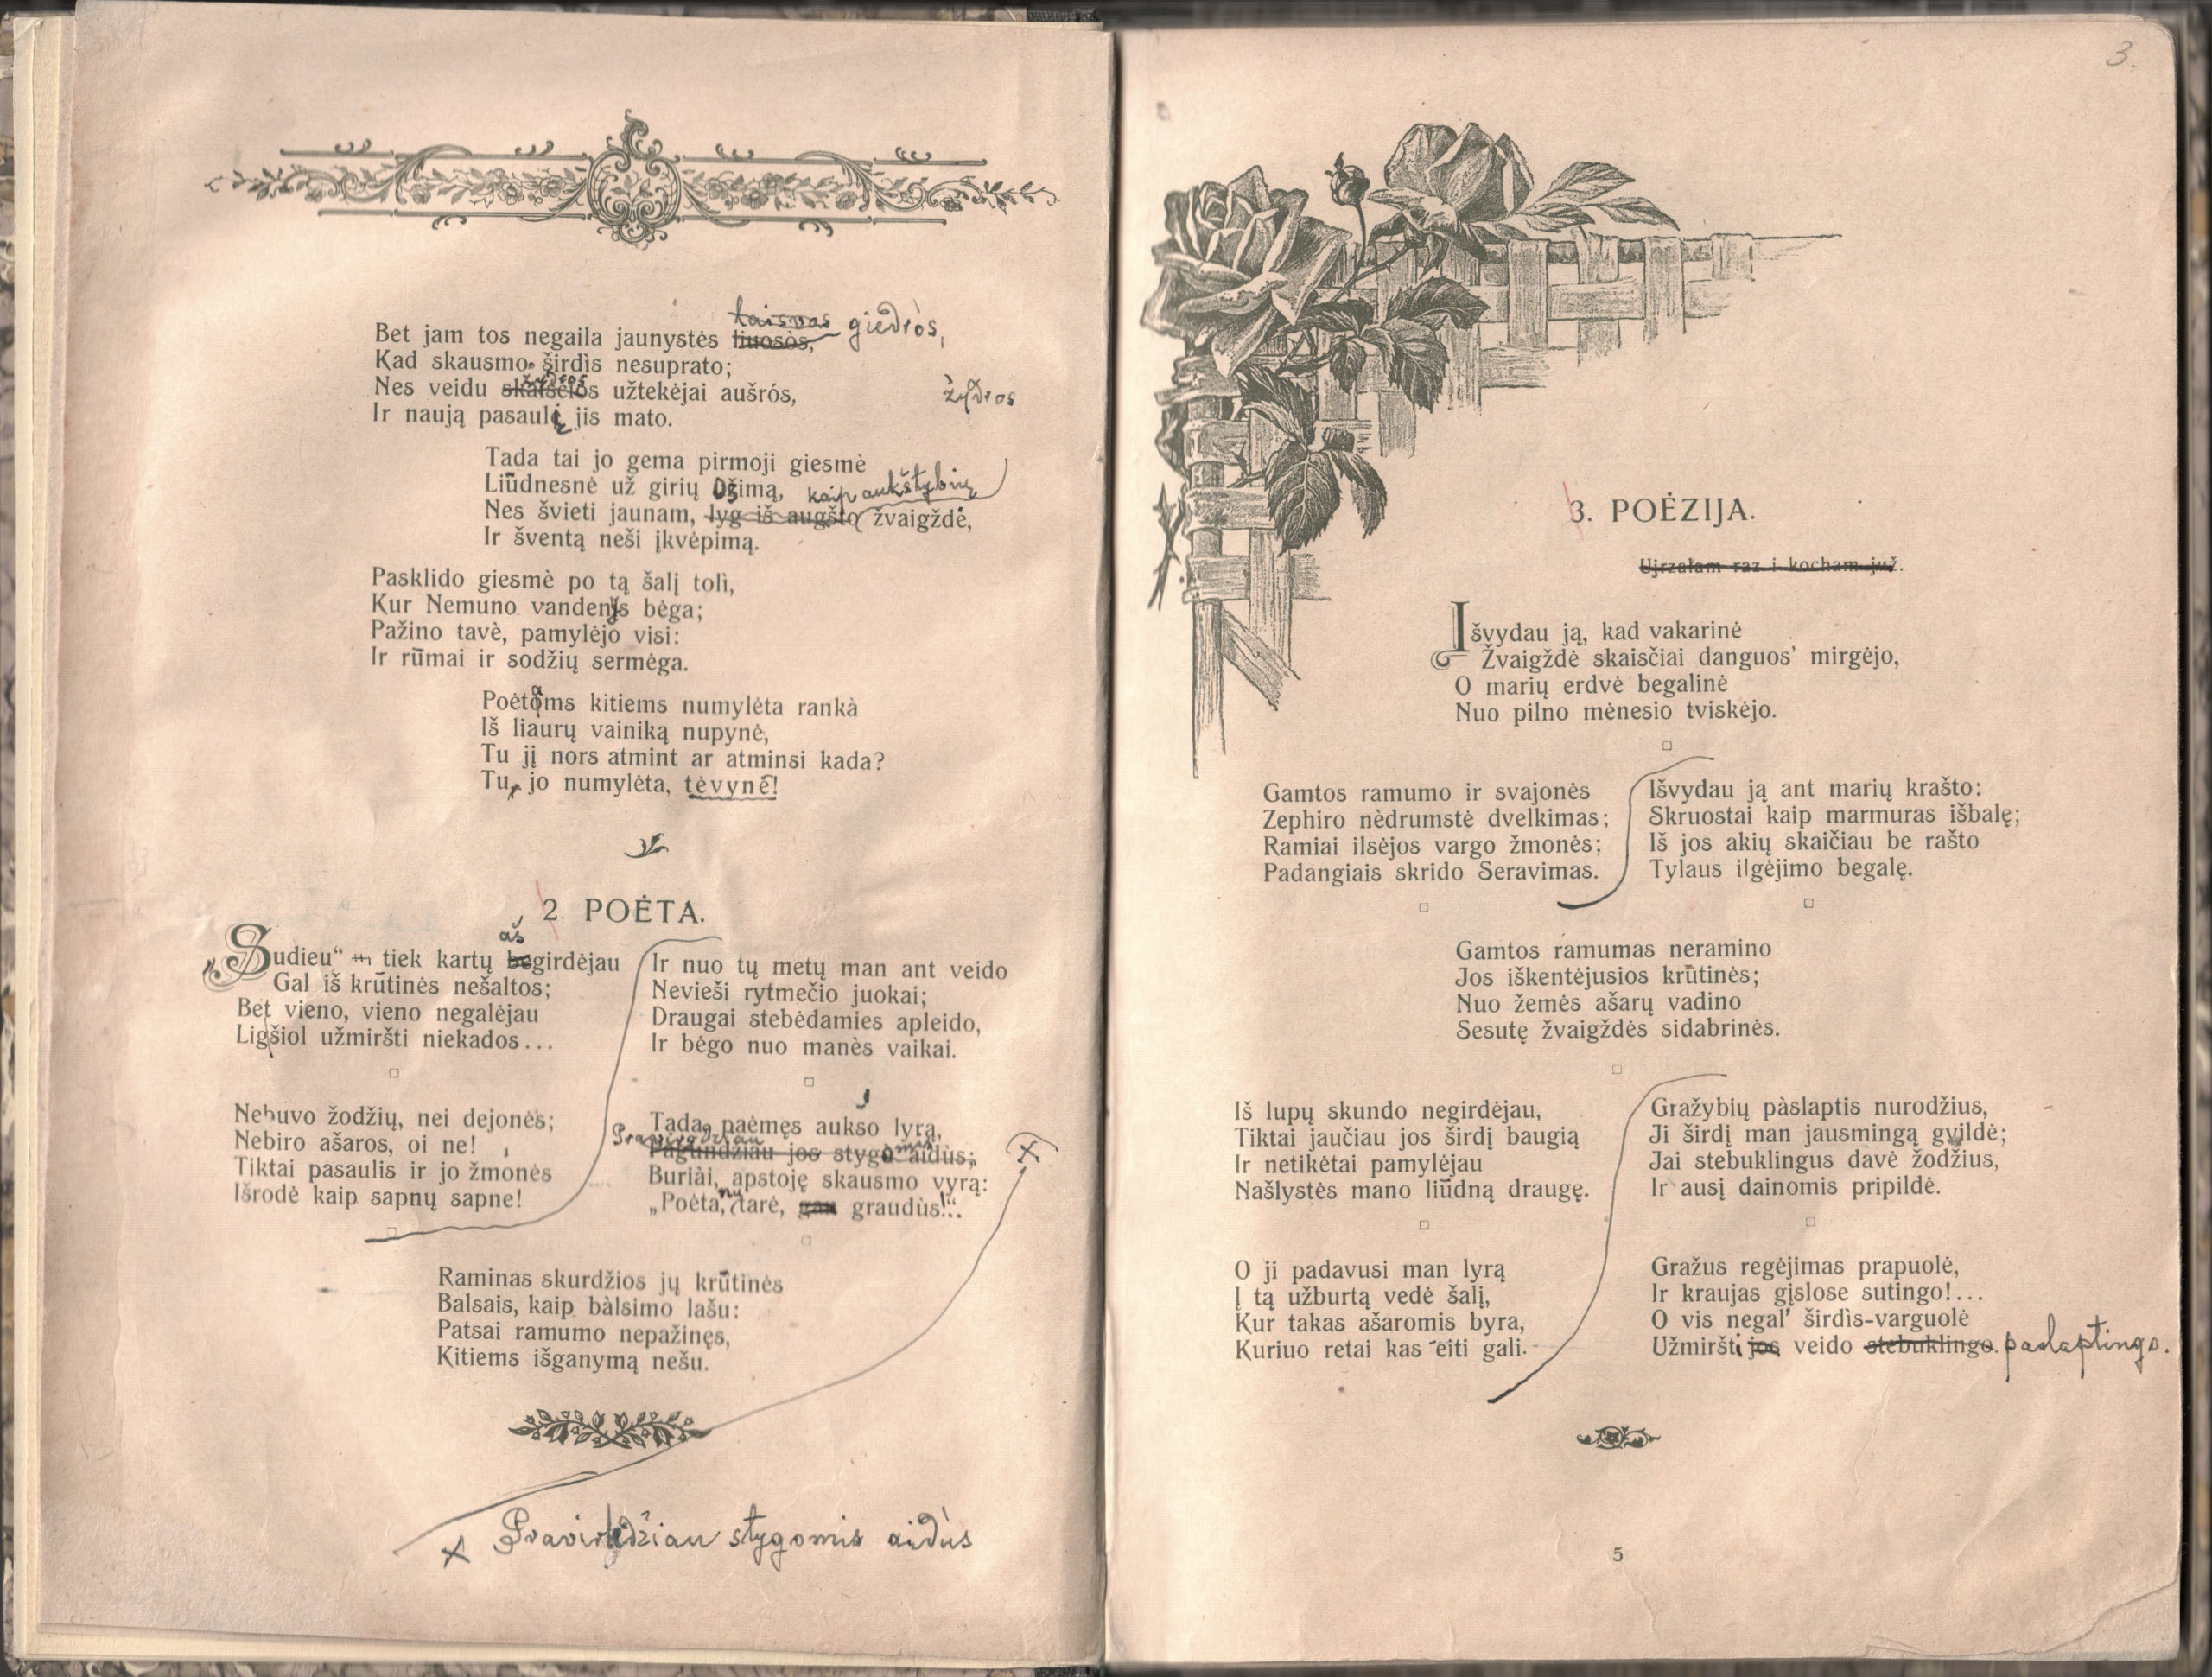 Bet jam tos negaila jaunystės liuosòs, laisvos giedròs,
Kad skausmo širdìs nesuprato;
Nes veidu skaisčios užtekėjai aušrós, žydros
Ir naują pasaulį jis mato.
Tada tai jo gema pirmoji giesmė
Liūdnesnė už girių ošimą, kaip aukštybių
Nes švieti jaunam, lyg iš augšto žvaigždė,
Ir šventą neši įkvėpimą.
Pasklido giesmė po tą šalį tolì,
Kur Nemuno vandenys bėga;
Pažino tavè, pamylėjo visi:
Ir rūmai ir sodžių sermėga.
Poėtams kitiems numylėta rankà
Iš liaurų vainiką nupynė,
Tu jį nors atmint ar atminsi kada?
Tu, jo numylėta, tėvynė!
2. POĖTA.
„Sudieu“ — tiek kartų aš begirdėjau
Gal iš krūtinės nešaltos;
Bet vieno, vieno negalėjau
Ligšiol užmiršti niekados...
Nebuvo žodžių, nei dejonės;
Nebiro ašaros, oi ne!
Tiktai pasaulis ir jo žmonės
Išrodė kaip sapnų sapne!
Ir nuo tų metų man ant veido
Nevieši rytmečio juokai;
Draugai stebėdamies apleido,
Ir bėgo nuo manės vaikai.
Tada, paėmęs aukso lyrą,
Pravirgdžiau
Pagundžiau jos stygomis aidùs;
Buriài, apstoję skausmo vyrą:
„Poėta, tarė, gan graudùs!“.
Raminas skurdžios jų krūtinės
Balsais, kaip bàlsimo lašu:
Patsai ramumo nepažinęs,
Kitiems išganymą nešu.
x Pravirkdžiau stygomis aidùs
3.
3. POĖZIJA.
Ujrzałam raz i kocham już.
Išvydau ją, kad vakarinė
Žvaigždė skaisčiai danguos’ mirgėjo,
O marių erdvė begalinė
Nuo pilno mėnesio tviskėjo.
Gamtos ramumo ir svajonės
Zephiro nèdrumstė dvelkimas;
Ramiai ilsėjos vargo žmonės;
Padangiais skrido Seravimas.
Išvydau ją ant marių krašto:
Skruostai kaip marmuras išbalę;
Iš jos akių skaičiau be rašto
Tylaus ilgėjimo begalę.
Gamtos ramumas neramino
Jos iškentėjusios krūtinės;
Nuo žemės ašarų vadino
Sesutę žvaigždės sidabrinės.
Iš lupų skundo negirdėjau,
Tiktai jaučiau jos širdį baugią
Ir netikėtai pamylėjau
Našlystės mano liūdną draugę.
O ji padavusi man lyrą
Į tą užburtą vedė šalį,
Kur takas ašaromis byra,
Kuriuo retai kas eiti gali.
Gražybių pàslaptis nurodžius,
Ji širdį man jausmingą gvildė;
Jai stebuklingus davė žodžius,
Ir ausį dainomis pripildė.
Gražus regėjimas prapuolė,
Ir kraujas gįslose sutingo!...
O vis negal’ širdìs-varguolė
Užmiršti jos veido stebuklingo. paslaptingo.
5